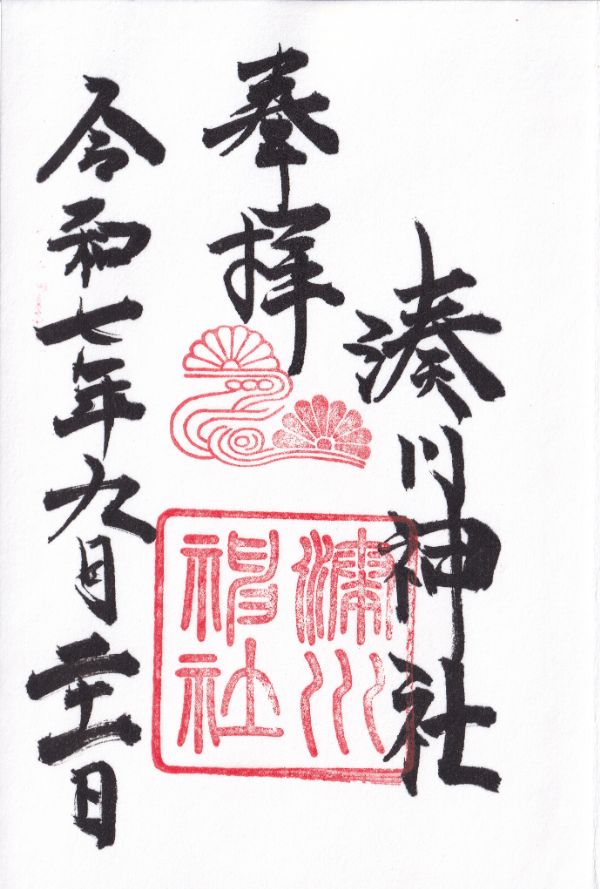 湊川神社
奉拝
令和七年九月二十一日
湊川
神社